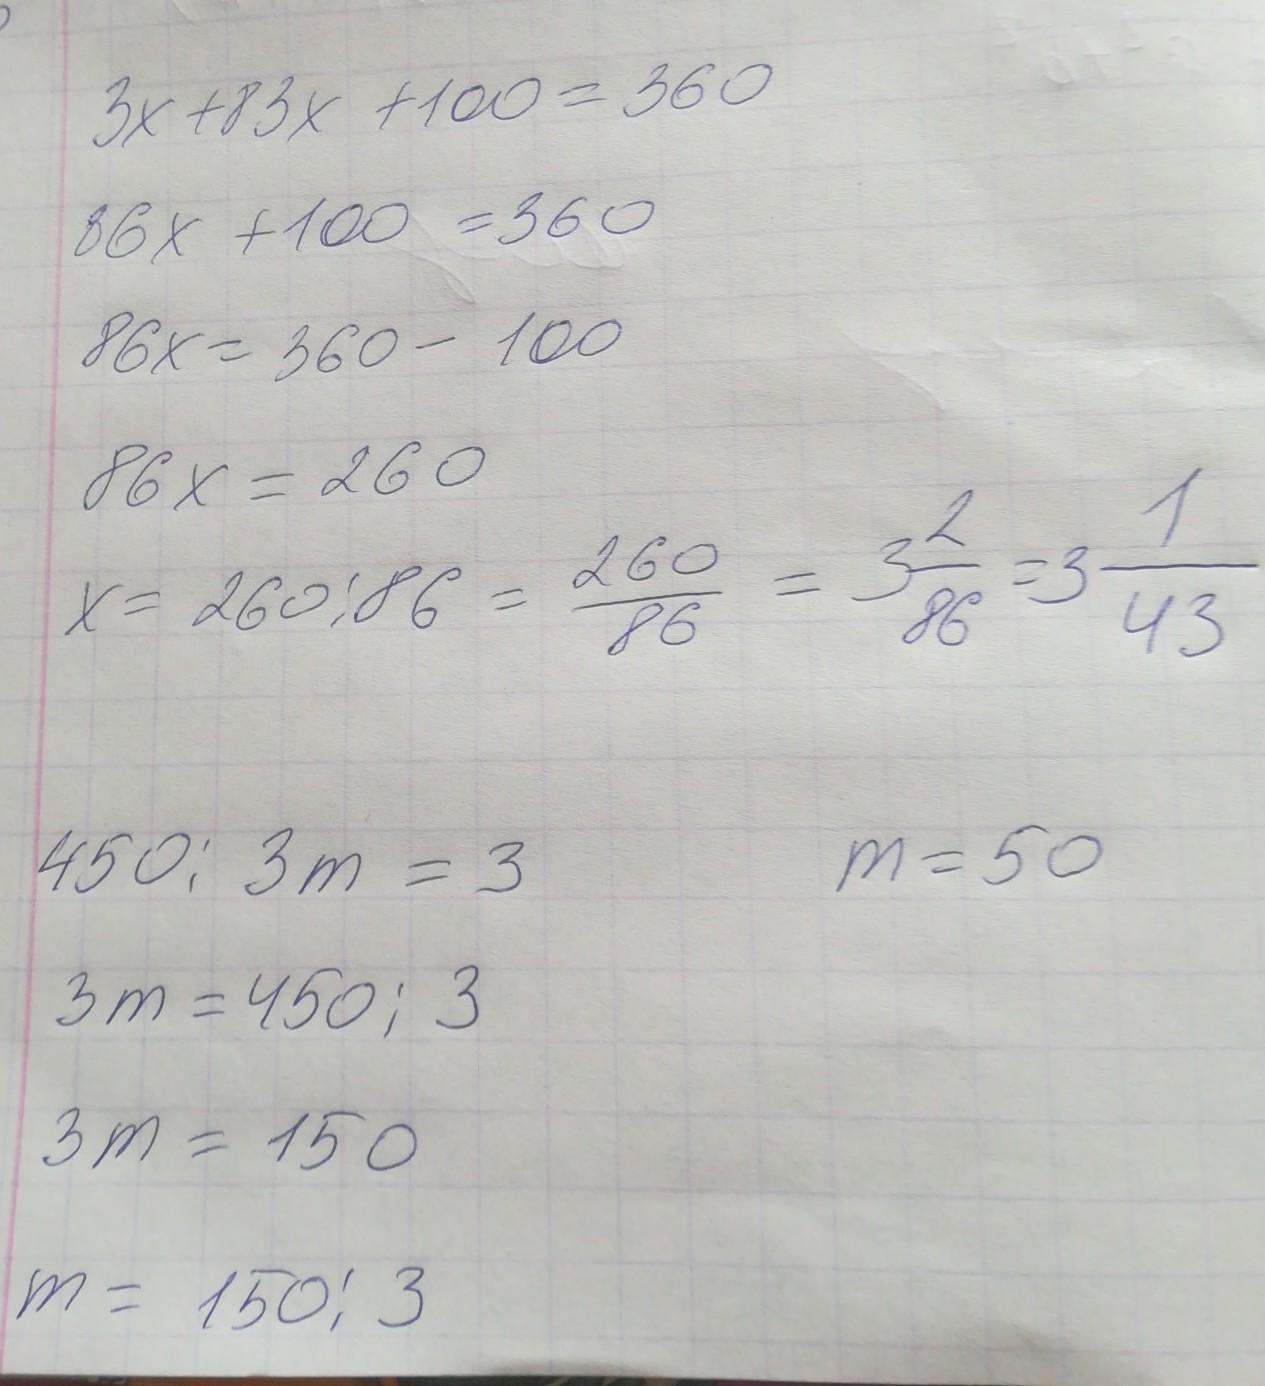 3x+83x +100=360
86x +100 =360
86x= 360- 100
86x = 260
x= 260:86 = 260/86 = 3 2/86 =3 1/43
450: 3m = 3
m=50
3m =450: 3
3m = 150
m= 150: 3